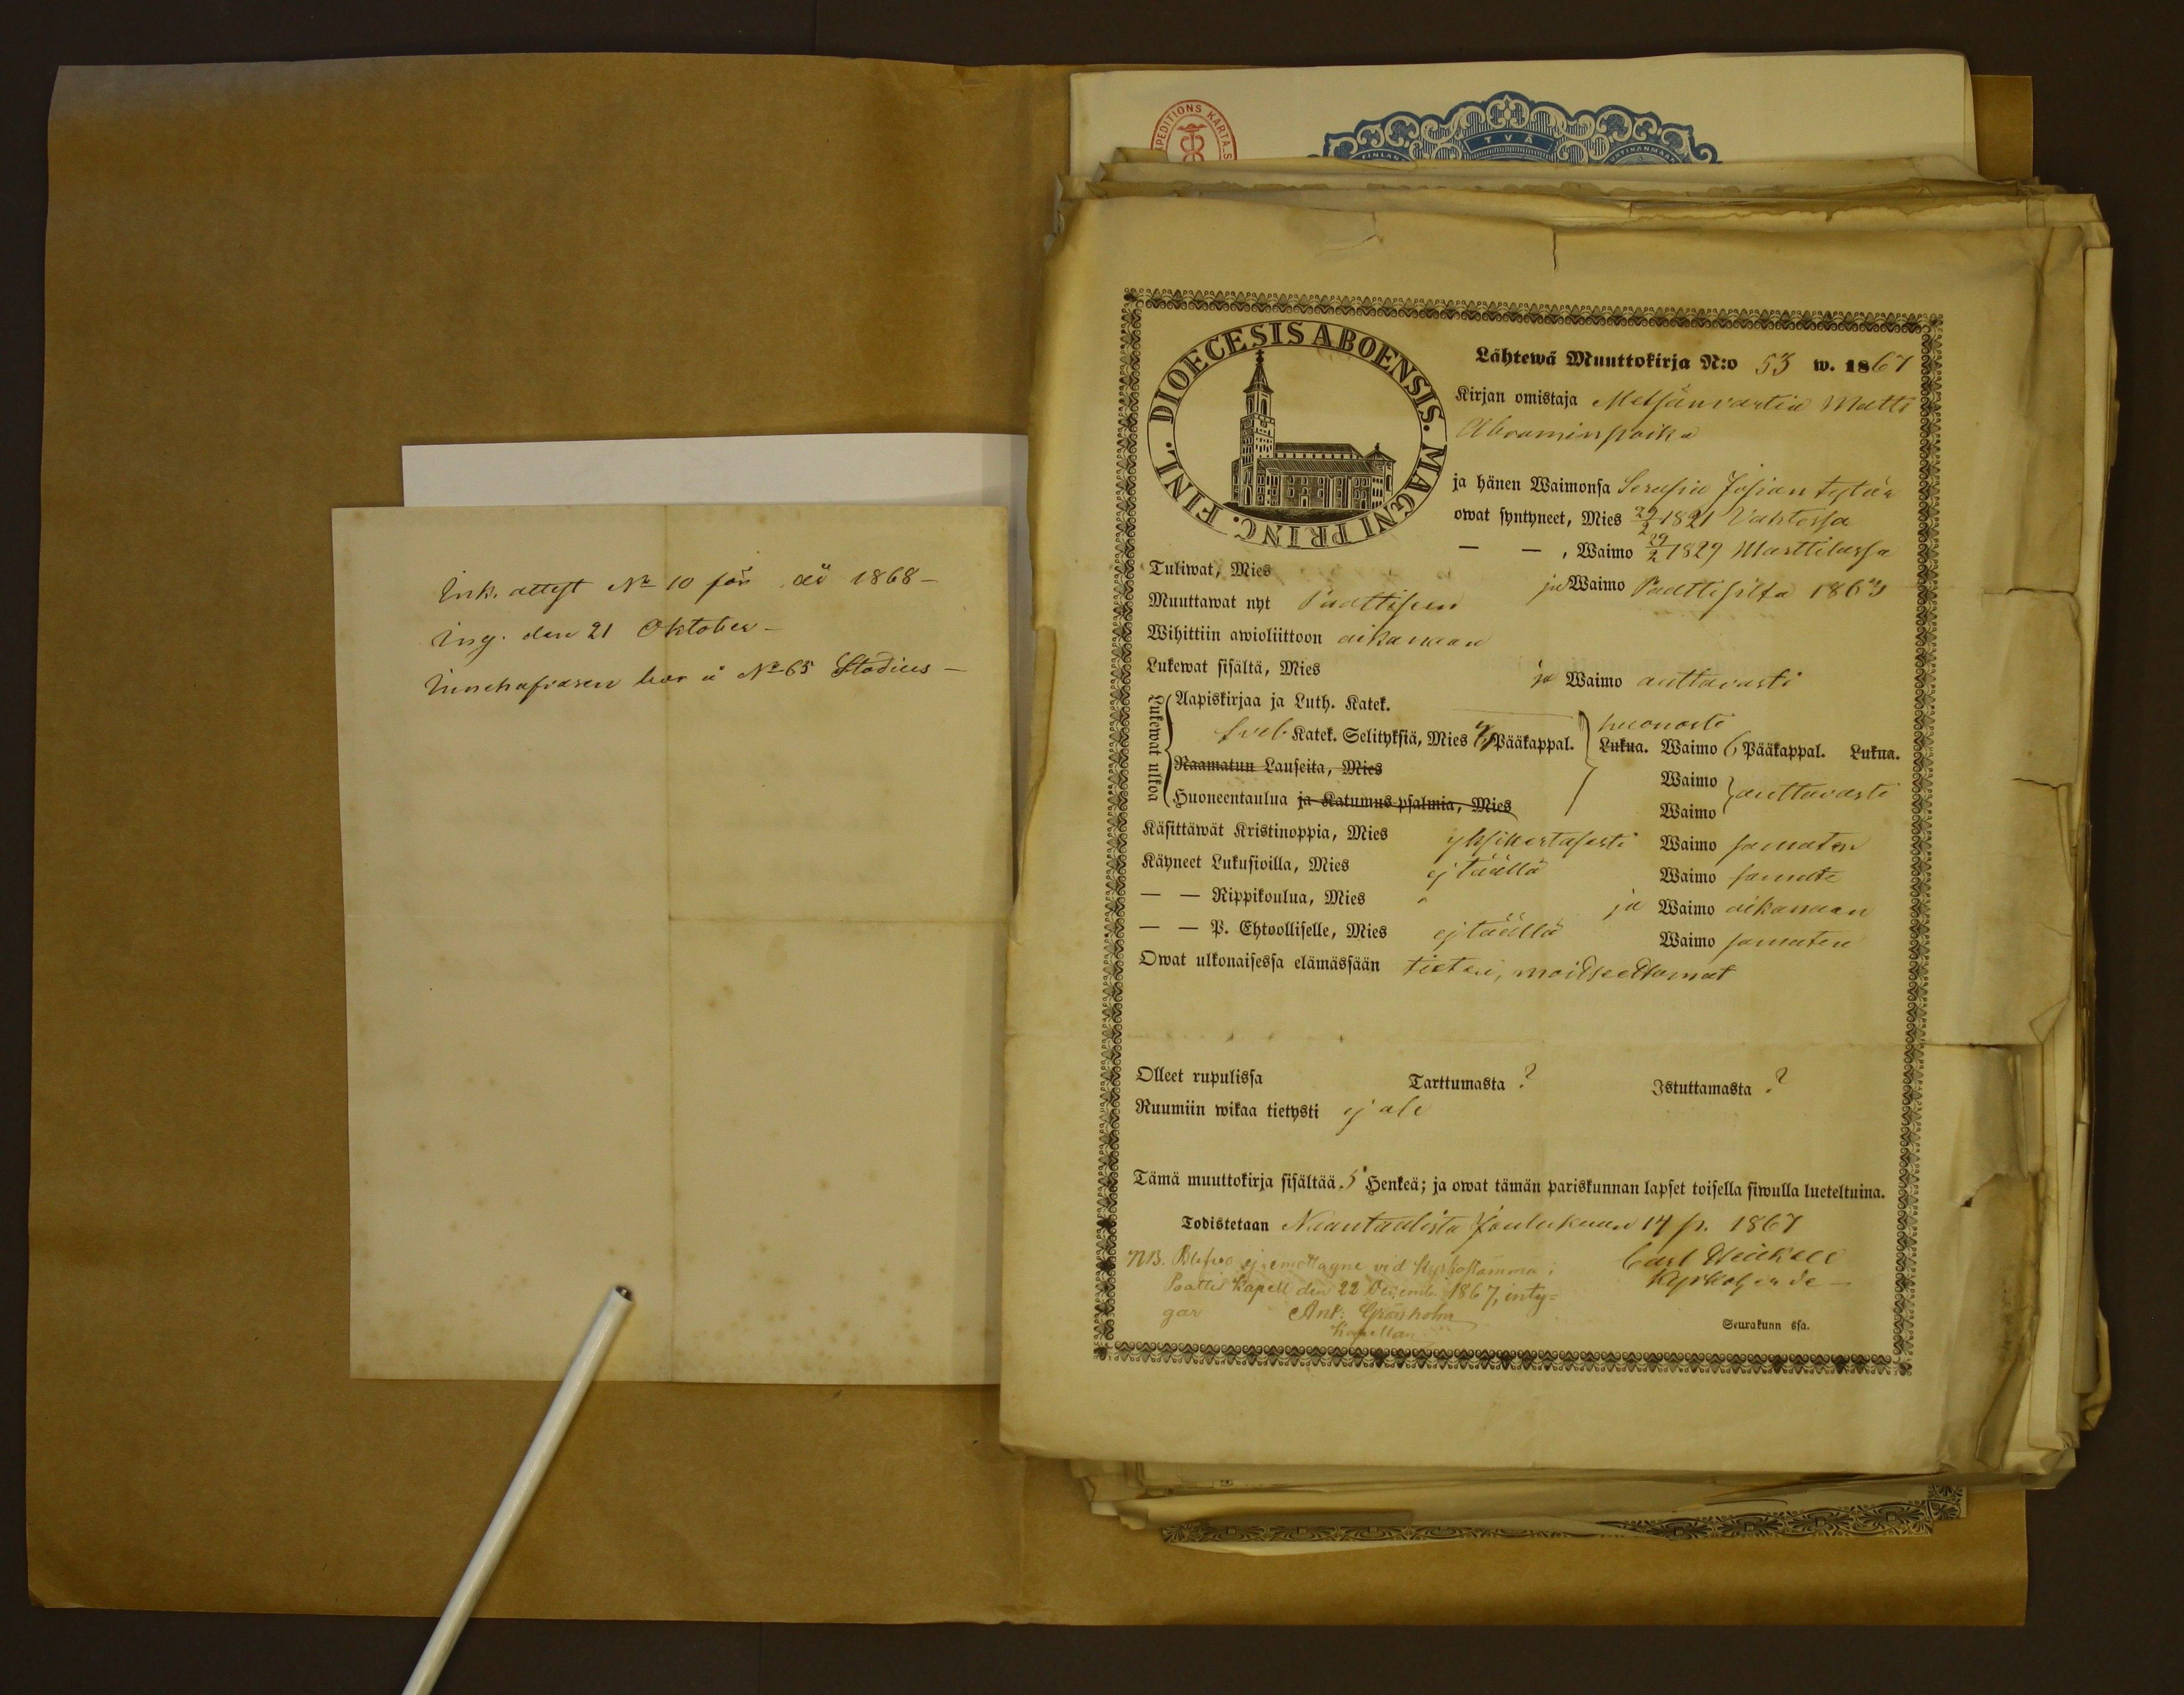 Ink. attest No 10 för år 1868 –
Ing. den 21 Oktober –
Innehafvaren bor i No 65 Stadies –
EXPEDITIONS KARTA.S
TVÅ
FINLAN
DIOECESIS ABOENSIS. MAGNI PRINC. FINL.
Lähtewä Muuttokirja N:o 53 w. 1867
Kirjan omistaja Metsänvartia Matti
Abraminpoika
ja hänen Waimonsa Serafia Josiantytär
owat syntyneet, Mies 29/2 1821 Vahtossa
— — , Waimo 29/2 1829 Marttilassa
Tuliwat, Mies ja Waimo Paattisilta 1863
Muuttawat nyt Paattiseen
Wihittiin awioliittoon aikanaan
Lukewat sisältä, Mies ja Waimo auttavasti
Lukewat ulkoa
Aapiskirjaa ja Luth. Katek.
Sveb. Katek. Selityksiä, Mies Pääkappal. huonosti Lukua. Waimo 6 Pääkappal. Lukua.
Raamatun Lauseita, Mies Waimo
Huoneentaulua ja Katumus psalmia, Mies Waimo auttavasti
Käsittäwät Kristinoppia, Mies yksikertasesti Waimo samaten
Käyneet Lukusioilla, Mies ej täällä Waimo samate
— — Rippikoulua, Mies ja Waimo aikanaan
— — P. Ehtoolliselle, Mies ej täällä Waimo samaten
Owat ulkonaisessa elämässään tieten, moitteettomat
Olleet rupulissa Tarttumasta ? Istuttamasta ?
Ruumiin wikaa tietysti ej ole
Tämä muuttokirja sisältää 5 Henkeä; ja owat tämän pariskunnan lapset toisella siwulla lueteltuina.
Todistetaan Naantalista Joulukuun 14 p. 1867
Carl Heikell
Kyrkoherde –
NB. Blefvo ej emottagne vid Kyrkostämma i
Paattis Kapell den 22 Decemb. 1867, inty=
gar Ant: Grönholm
Kapellan
Seurakunn ssa.